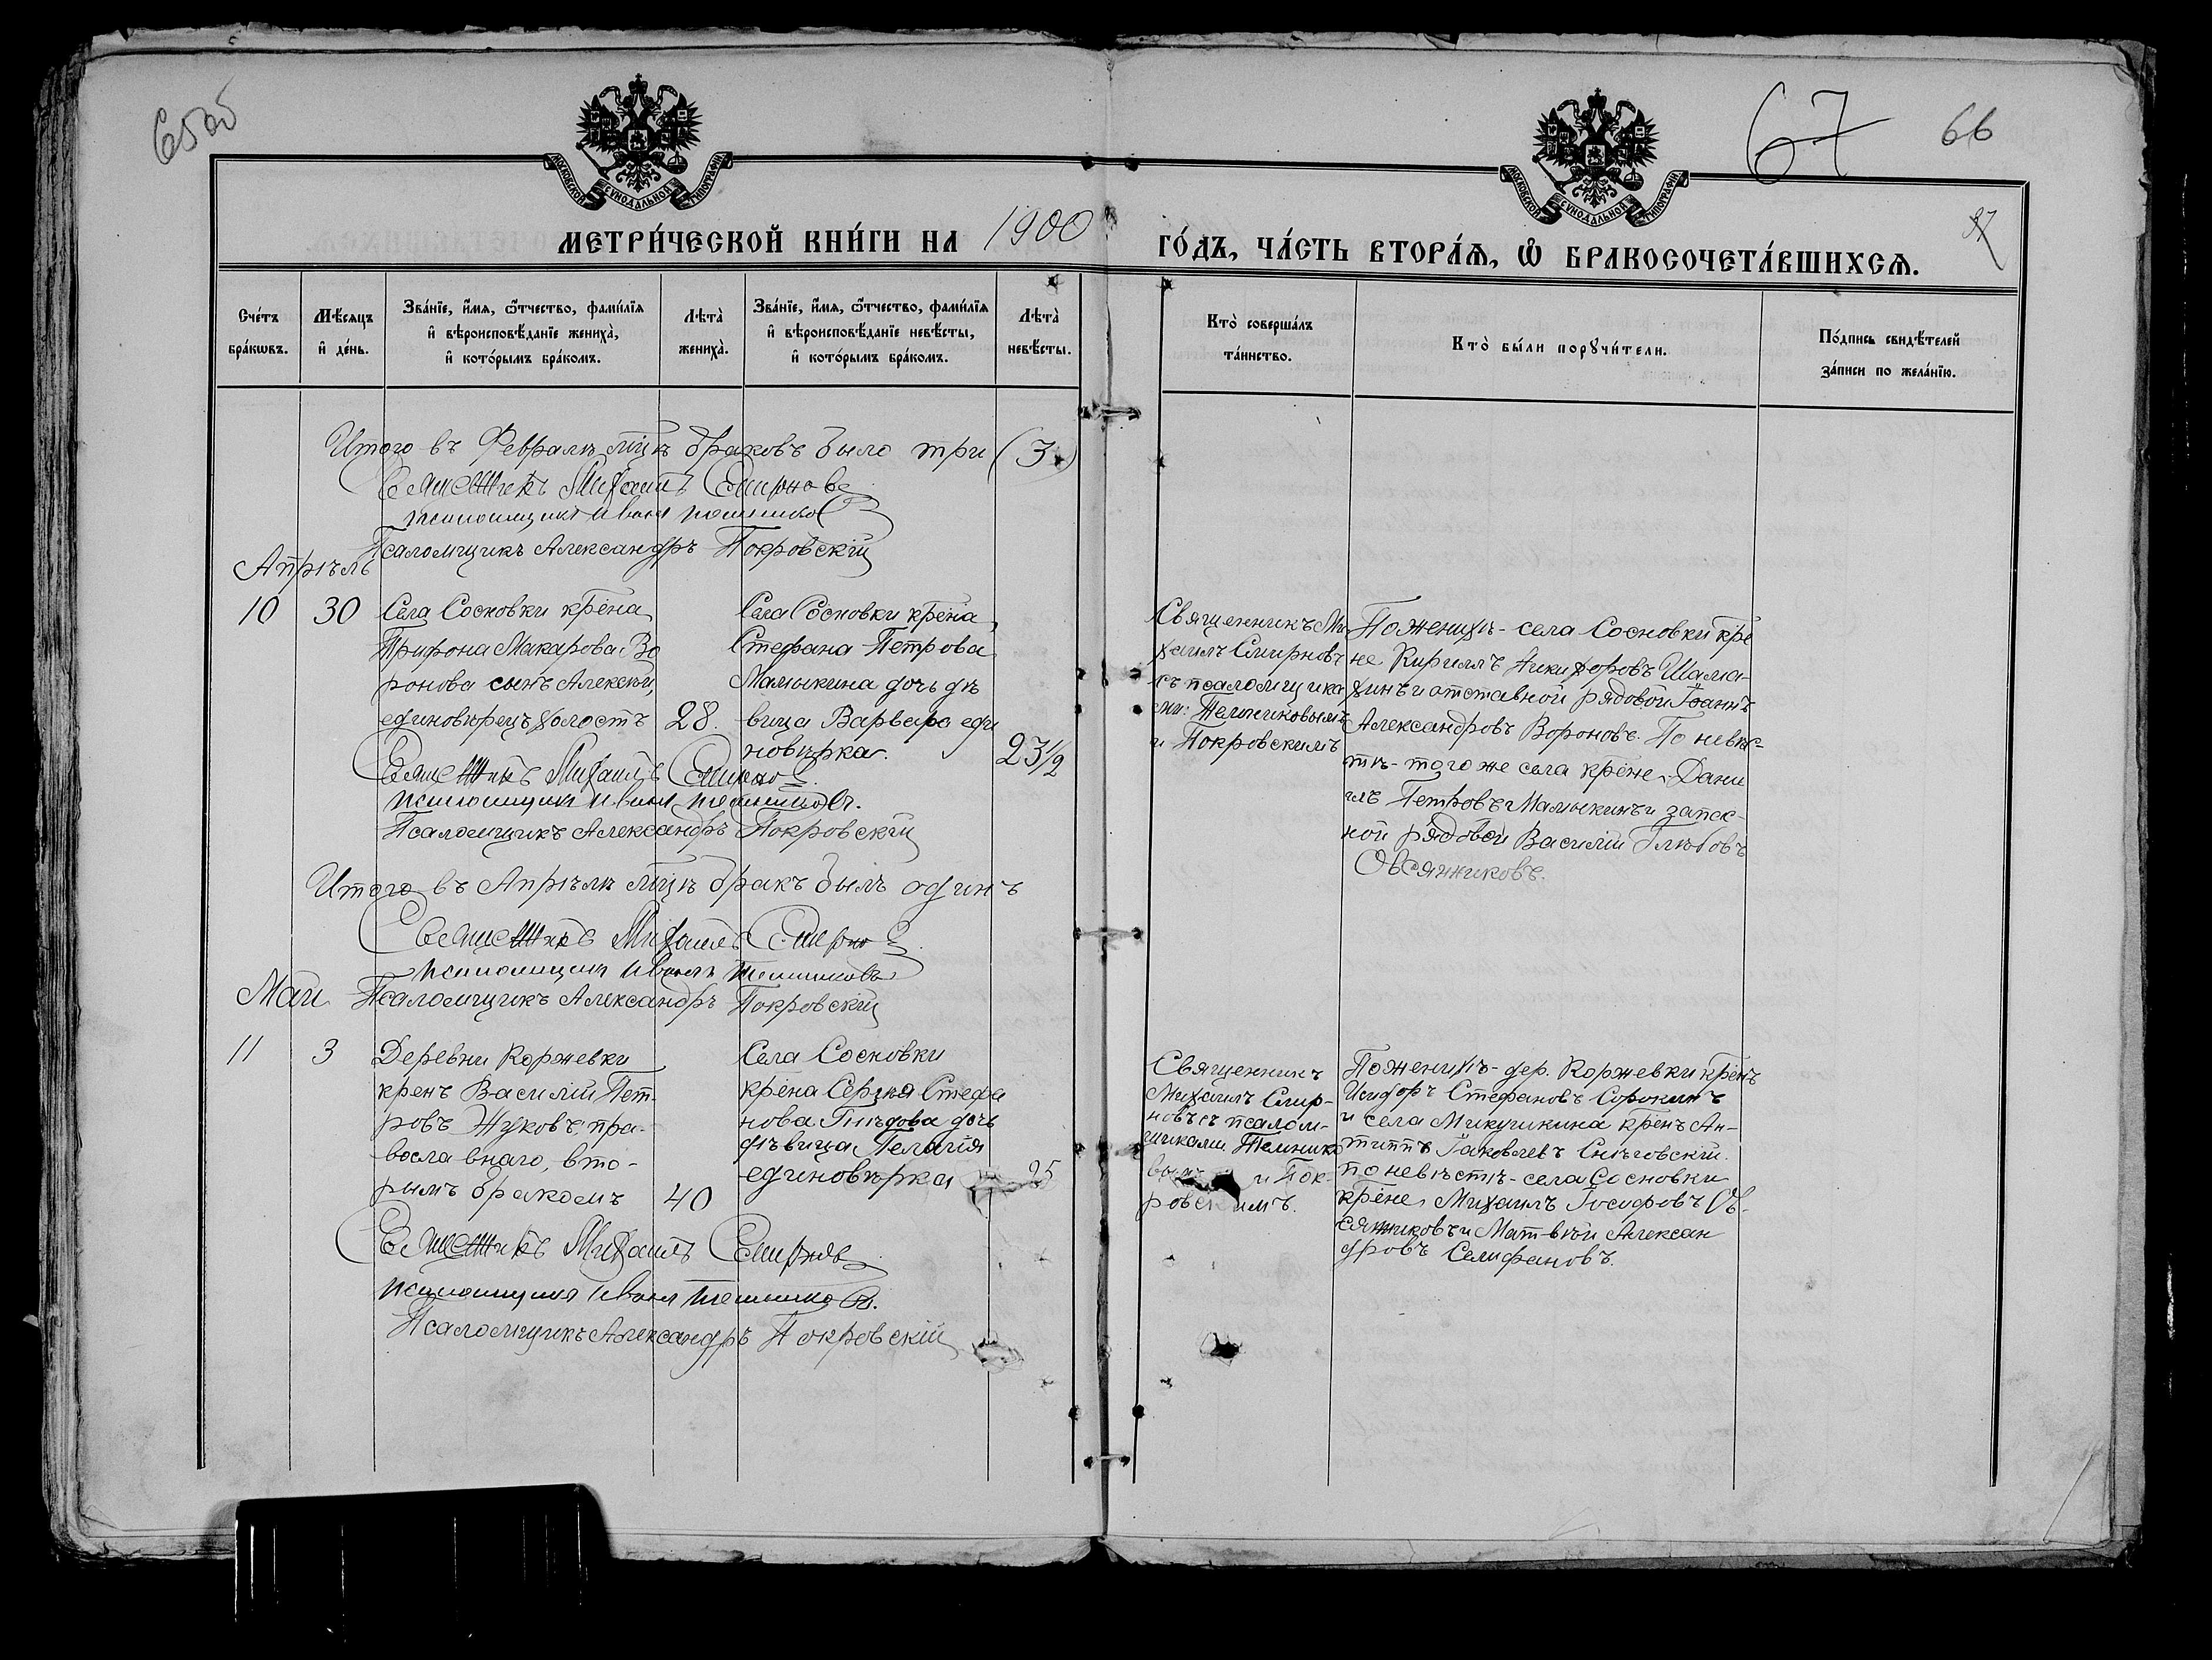 65об
67
66
МОСКОВСКОЙ СѴНОДАЛЬНОЙ ТИПОГРАФІИ
МОСКОВСКОЙ СѴНОДАЛЬНОЙ ТИПОГРАФІИ
МЕТРИ́ЧЕСКОЙ КНИ́ГИ НА 1900
ГО́ДЪ, ЧА́СТЬ ВТОРА́Ѧ, Ѽ БРАКОСОЧЕТА́ВШИХСѦ.
Сче́тъ
бра́кѡвъ.
Мѣ́сяцъ
и҆ де́нь.
Зва́нїе, и҆́мя, ѻ҆́тчество, фами́лїя
и҆ вѣроисповѣ́данїе жениха̀,
и҆ кото́рымъ бра́комъ.
Лѣта̀
жениха̀.
Зва́нїе, и҆́мя, ѻ҆́тчество, фами́лїя
и҆ вѣроисповѣ́данїе невѣ́сты,
и҆ кото́рымъ бра́комъ.
Лѣта̀
невѣ́сты.
Кто̀ соверша́лъ
та́инство.
Кто̀ бы́ли порꙋчи́тели.
По́дпись свидѣ́телей
за́писи по жела́нїю.
Итого въ Февралѣ мц̃ѣ браковъ было три (3)
Священникъ Михаилъ Смирновъ
Псаломщикъ Иванъ Темниковъ
Псаломщикъ Александръ Покровскій
Апрѣль
10
30
Села Сосновки кр̃ена
Трифона Макарова Во
ронова сынъ Алексѣй,
единовѣрецъ, холостъ
28.
Села Сосновки кр̃ена
Стефана Петрова
Мамыкина дочь дѣ
вица Варвара еди
новѣрка.
23½
Священникъ Ми
хаилъ Смирновъ
съ псаломщика
ми: Темниковымъ
и Покровскимъ
По женихѣ - села Сосновки кр̃е
не Кириллъ Никифоровъ Шама-
хинъ и отставной рядовой Іоаннъ
Александровъ Вороновъ. По невѣс-
тѣ - того же села кр̃ене Дани
илъ Петровъ Мамыкинъ и запас-
ной рядовой Василій Глѣбовъ
Овсянниковъ.
Священникъ Михаилъ Смирновъ
Псаломщикъ Иванъ Темниковъ.
Псаломщикъ Александръ Покровскій
Итого въ Апрѣлѣ мц̃ѣ бракъ былъ одинъ
Священникъ Михаилъ Смирновъ
Псаломщикъ Иванъ Темниковъ
Псаломщикъ Александръ Покровскій
Май
11
3
Деревни Коржевки
кр̃енъ Василій Пет-
ровъ Жуковъ, пра-
вославнаго, вто-
рымъ бракомъ
40
Села Сосновки
кр̃ена Сергѣя Стефа
нова Гнѣдова дочь
дѣвица Пелагія
единовѣрка
25
Священникъ
Михаилъ Смир-
новъ съ псалом-
щиками Темнико
вымъ и Пок-
ровскимъ.
По женихѣ - дер. Коржевки кр̃енъ
Исидоръ Стефановъ Сорокинъ
и села Микушкина кр̃енъ Ан-
типпъ Іаковлевъ Снѣговскій.
по невѣстѣ - села Сосновки
кр̃ене, Михаилъ Іосифовъ Ов-
сянниковъ и Матвѣй Алексан
дровъ Селифановъ.
Священникъ Михаилъ Смирновъ
Псаломщикъ Иванъ Темниковъ.
Псаломщикъ Александръ Покровскій